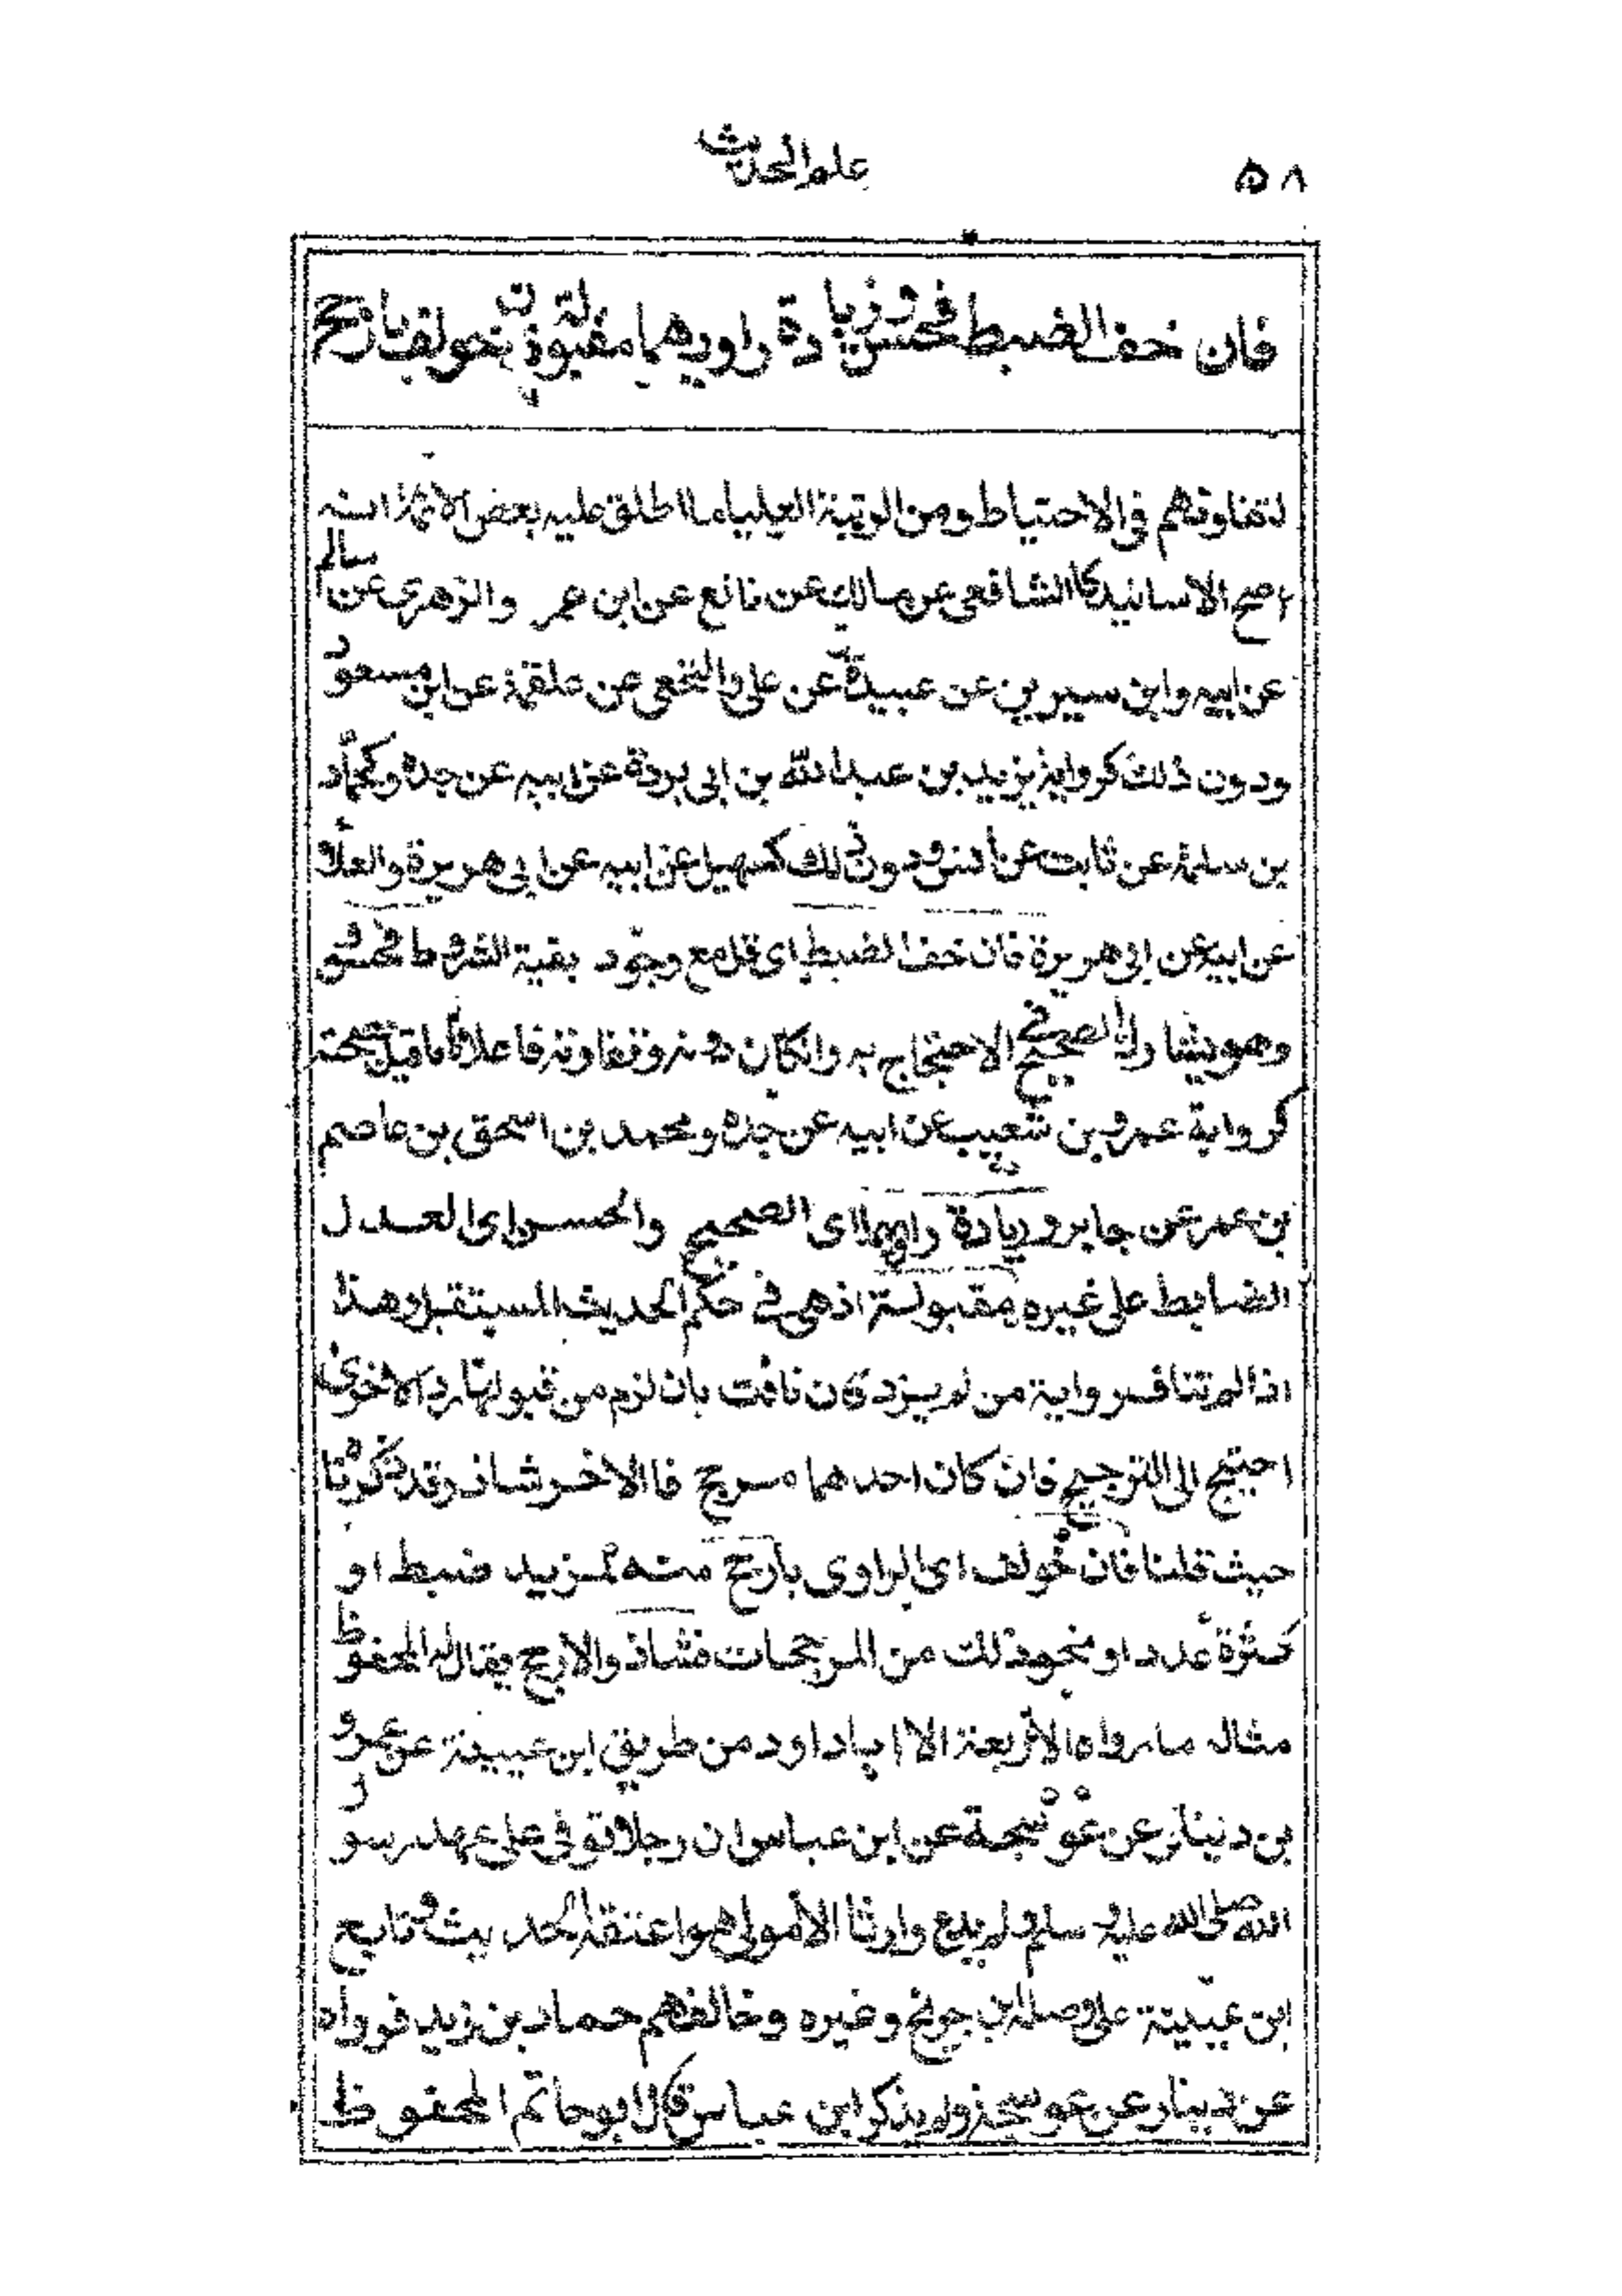 ٥٨
علم الحديث
فان خف الضبط فحسن وزيادة راويهما مقبولة فان خولف بارجح
لتفاوتهم في الاحتياط ومن الرتبة العلياء ما اطلق عليه بعض الائمة انه
اصح الاسانيد كالشافعي عن مالك عن نافع عن ابن عمر والزهري عن سالم
عن ابيه وابن سيرين عن عبيدة عن علي والنخعي عن علقمة عن ابن مسعود
ودون ذلك كرواية يزيد بن عبد الله بن ابي بردة عن ابيه عن جده وكحماد
بن سلمة عن ثابت عن أنس ودون ذلك كسهيل عن ابيه عن ابي هريرة والعلاء
عن ابيه عن ابي هريرة فان خف الضبط اي قل مع وجود بقية الشروط فحسن
وهو يشارك الصحيح في الاحتجاج به وانكان دونه وتفاوته فاعلاه ما قيل بصحته
كرواية عمرو بن شعيب عن ابيه عن جده ومحمد بن اسحق بن عاصم
بن عمر عن جابر وزيادة راويهما اي الصحيح والحسن اي العدل
الضابط على غيره مقبولة اذ هي في حكم الحديث المستقبل وهذا
اذا لم تناف رواية من لم يزد فان نافت بان لزم من قبولها رد الاخرى
احتيج الى الترجيح فان كان احدهما مرجح فالاخر شاذ وقد ذكرنا
حيث قلنا فان خولف اي الراوي بأرجح منه لمزيد ضبط او
كثرة عدد او نحو ذلك من المرجحات فشاذ والارجح يقال له المحفوظ
مثاله ما رواه الاربعة الا اباداود من طريق ابن عيينة عن عمرو
بن دينار عن عوسجة عن ابن عباس ان رجلا توفي على عهد رسول
الله صلى الله عليه وسلم ولم يدع وارثا الا مولى هو اعتقه الحديث وتابع
ابن عيينة على وصله ابن جريج وغيره وخالفهم حماد بن زيد فرواه
عن دينار عن عوسجة ولم يذكر ابن عباس قال ابو حاتم المحفوظ